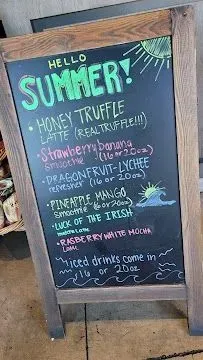 HELLO
SUMMER!
• HONEY TRUFFLE
LATTE (REAL TRUFFLE!!!)
• Strawberry banana
smoothie (16 or 20oz)
• DRAGONFRUIT-LYCHEE
refresher (16 or 20oz)
• PINEAPPLE MANGO
Smoothie (16 or 20oz)
• LUCK OF THE IRISH
• RASBERRY WHITE MOCHA
iced drinks come in
16 or 20oz